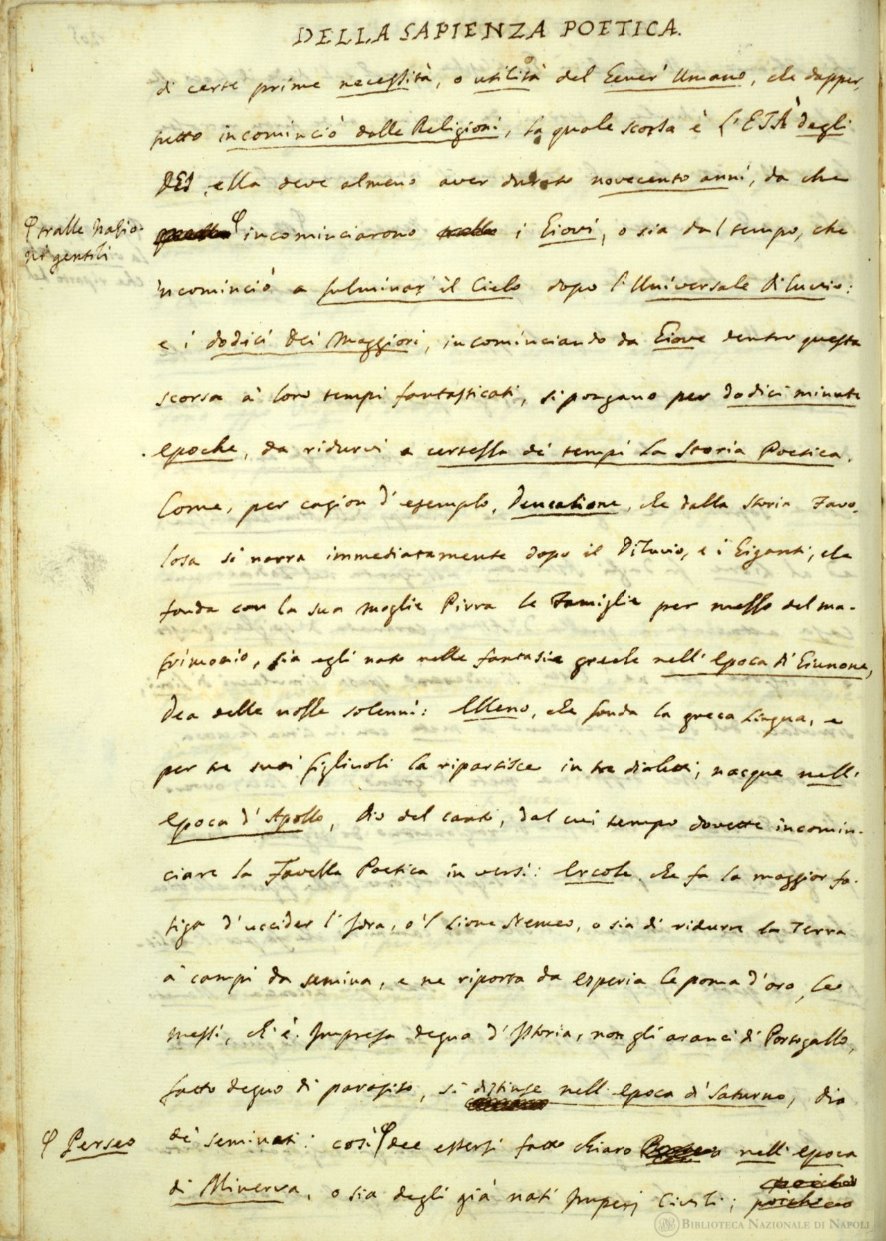 DELLA SAPIENZA POETICA.
di certe prime necessità, o utilità del Gener' Umano, che dapper,
tutto incominciò dalle Religioni, la quale scorsa è L'ETÀ degli
DEI, ella deve almeno aver durato novecento anni, da che
φ tralle Nazio-
ni gentili
φ incominciarono i Giovi, o sia dal tempo, che
'ncominciò a fulminar' il Cielo dopo l'Universale Diluvio:
e i dodici Dei Maggiori, incominciando da Giove dentro questa
scorsa a' loro tempi fantasticati, si pongano per dodici minute
epoche, da ridurvi a certezza de' tempi la Storia Poetica.
Come, per cagion d'esemplo, Deucalione, che dalla Storia Favo-
losa si narra immediatamente dopo il Diluvio, e i Giganti, che
fonda con la sua moglie Pirra le Famiglie per mezzo del ma-
trimonio, sia egli nato nelle fantasie greche nell'epoca di Giunone,
Dea delle nozze solenni: Elleno, che fonda la greca lingua, e
per tre suoi figliuoli la ripartisce in tre dialetti; nacque nell'
epoca d'Apollo, dio del canto, dal cui tempo dovette incomin-
ciare la Favella Poetica in versi: Ercole, che fa la maggior fa-
tiga d'uccider l'Idra, o 'l Lione Nemeo, o sia di ridurre la Terra
a' campi da semina, e ne riporta da Esperia le poma d'oro, le
messi, ch'è Impresa degna d'Istoria, non gli aranci di Portogallo,
fatto degno di parasito, si distinse nell'epoca di Saturno, dio
φ Perseo
de' seminati: così φ dee essersi fatto chiaro nell'epoca
di Minerva, o sia degli già nati Imperj Civili; poiché
BIBLIOTECA NAZIONALE DI NAPOLI